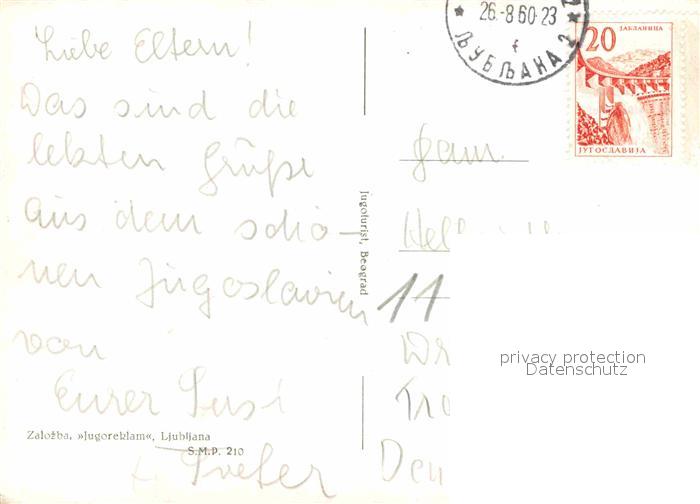 Liebe Eltern!
Das sind die
letzten Grüße
aus dem schö-
nen Jugoslavien
von
Eurer Susi
+ Peter
Založba, »Jugoreklam«, Ljubljana
S.M.P. 210
Jugoturist, Beograd
26.-8 60-23
f
ЉУБЉАНА 2
20
ЈАБЛАНИЦА
ЈУГОСЛАВИЈА
Fam.
11
privacy protection
Datenschutz